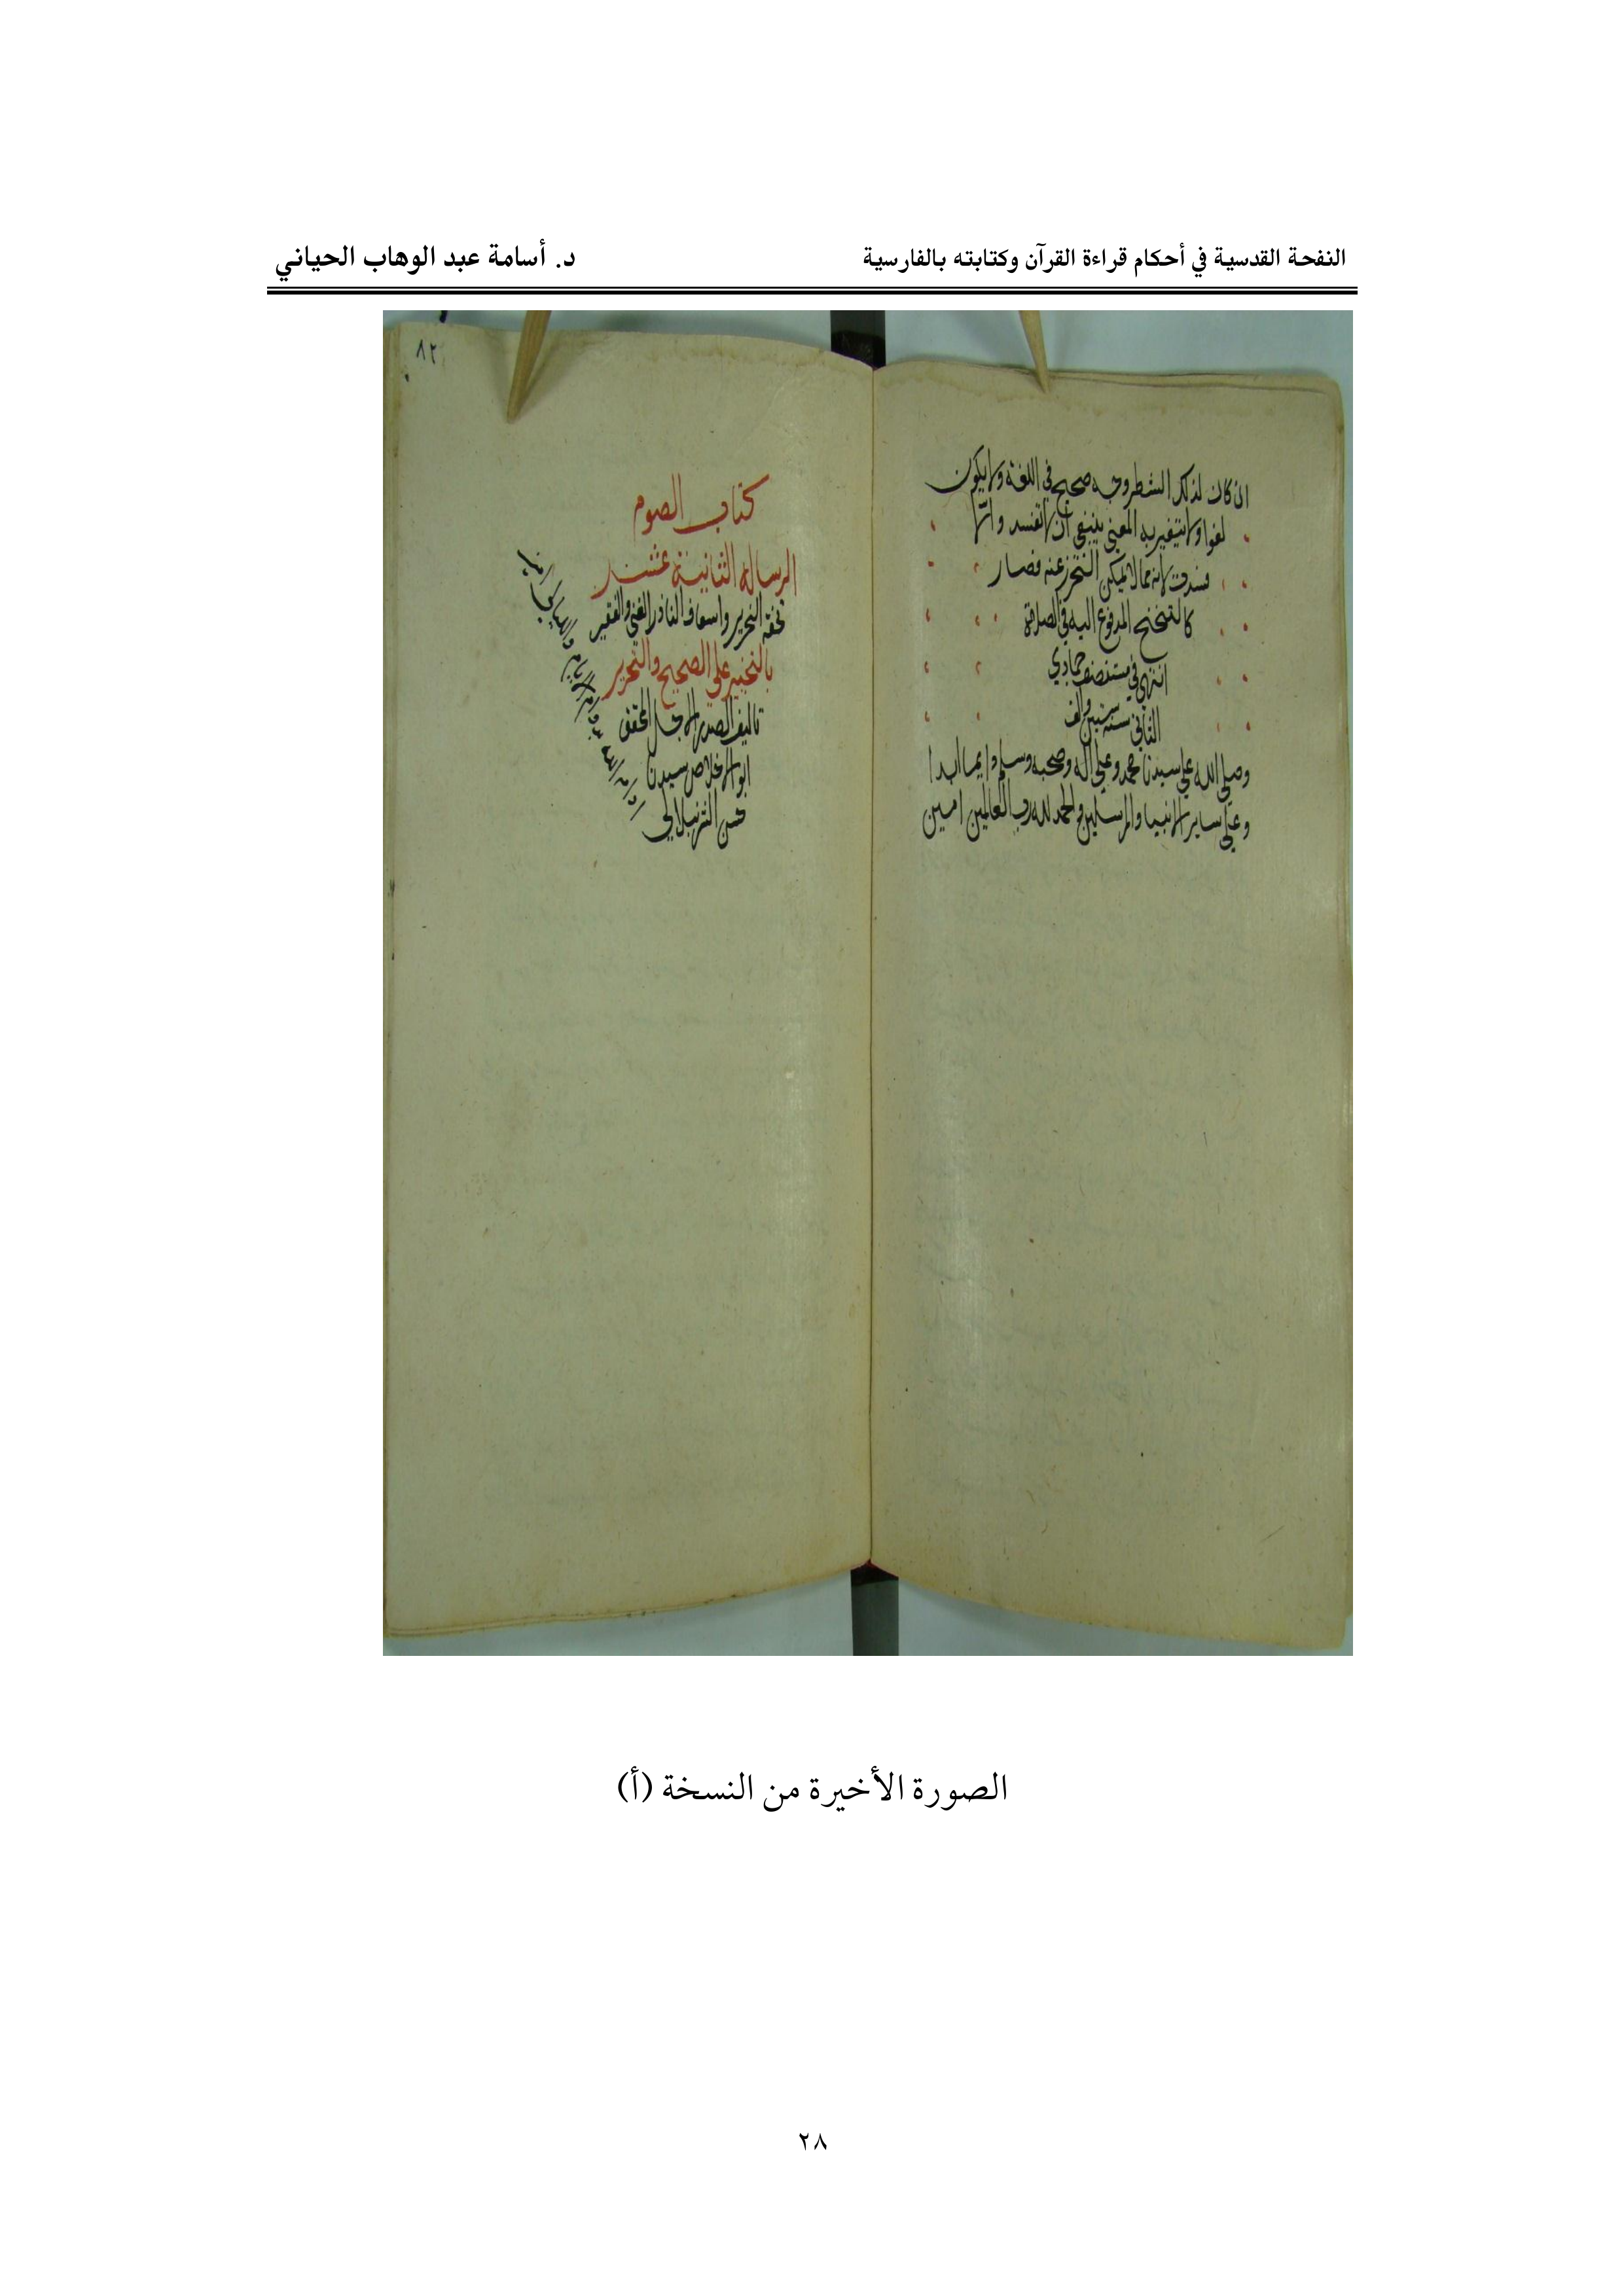 النفحة القدسية في أحكام قراءة القرآن وكتابته بالفارسية
د. أسامة عبد الوهاب الحياني
ان كان لذلك الشطر وجه صحيح في اللغة ولا يكون
لغوا ولا يتغير به المعنى ينبغي ان لا تفسد وانما
فسدت لانه مما لا يمكن التحرز عنه فصار
كالتنحنح المدفوع اليه في الصلاة
انتهى في مستنصف جمادي
الثاني سنة ستين والف
وصلى الله على سيدنا محمد وعلى اله وصحبه وسلم دايما ابدا
وعلى ساير الانبيا والمرسلين والحمد لله رب العالمين امين
٨٢
كتاب الصوم
الرسالة الثانية عشر
تحفة التحرير واسعاف الناذر الغني والفقير
بالتخيير على الصحيح والتحرير
تاليف الصدر الاجل المحقق
ابو الاخلاص سيدنا
حسن الشرنبلالي
الصورة الأخيرة من النسخة (أ)
٢٨